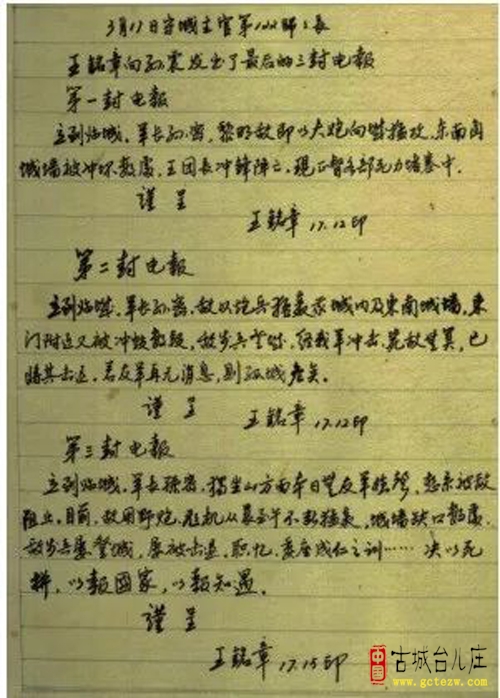 3月17日守城主官第122师师长
王铭章向孙震发出了最后的三封电报
第一封电报
立到临城,军长孙密,黎明敌即以大炮向滕猛攻,东南角
城墙被冲坏数处,王团长冲锋阵亡,现正督各部死力堵塞中.
谨呈
王铭章 17.12印
第二封电报
立到临城.军长孙密,敌以炮兵猛轰我城内及东南城墙,东
门附近又被冲毁数段,敌步兵登城,经我军冲击,毙敌无算,已
将其击退.若友军再无消息,则孤城危矣.
谨呈
王铭章 17.12印
第三封电报
立到临城,军长孙密,独坐山方面本日无友军枪声,想系被敌
阻止,目前,敌用野炮.飞机从晨至午不断猛轰,城墙缺口数处,
敌步兵屡登城,屡被击退,职忆,委座成仁之训……决以死
拼,以报国家,以报知遇.
谨呈
王铭章 17.15印
中國
古城台儿庄
www.gctezw.com